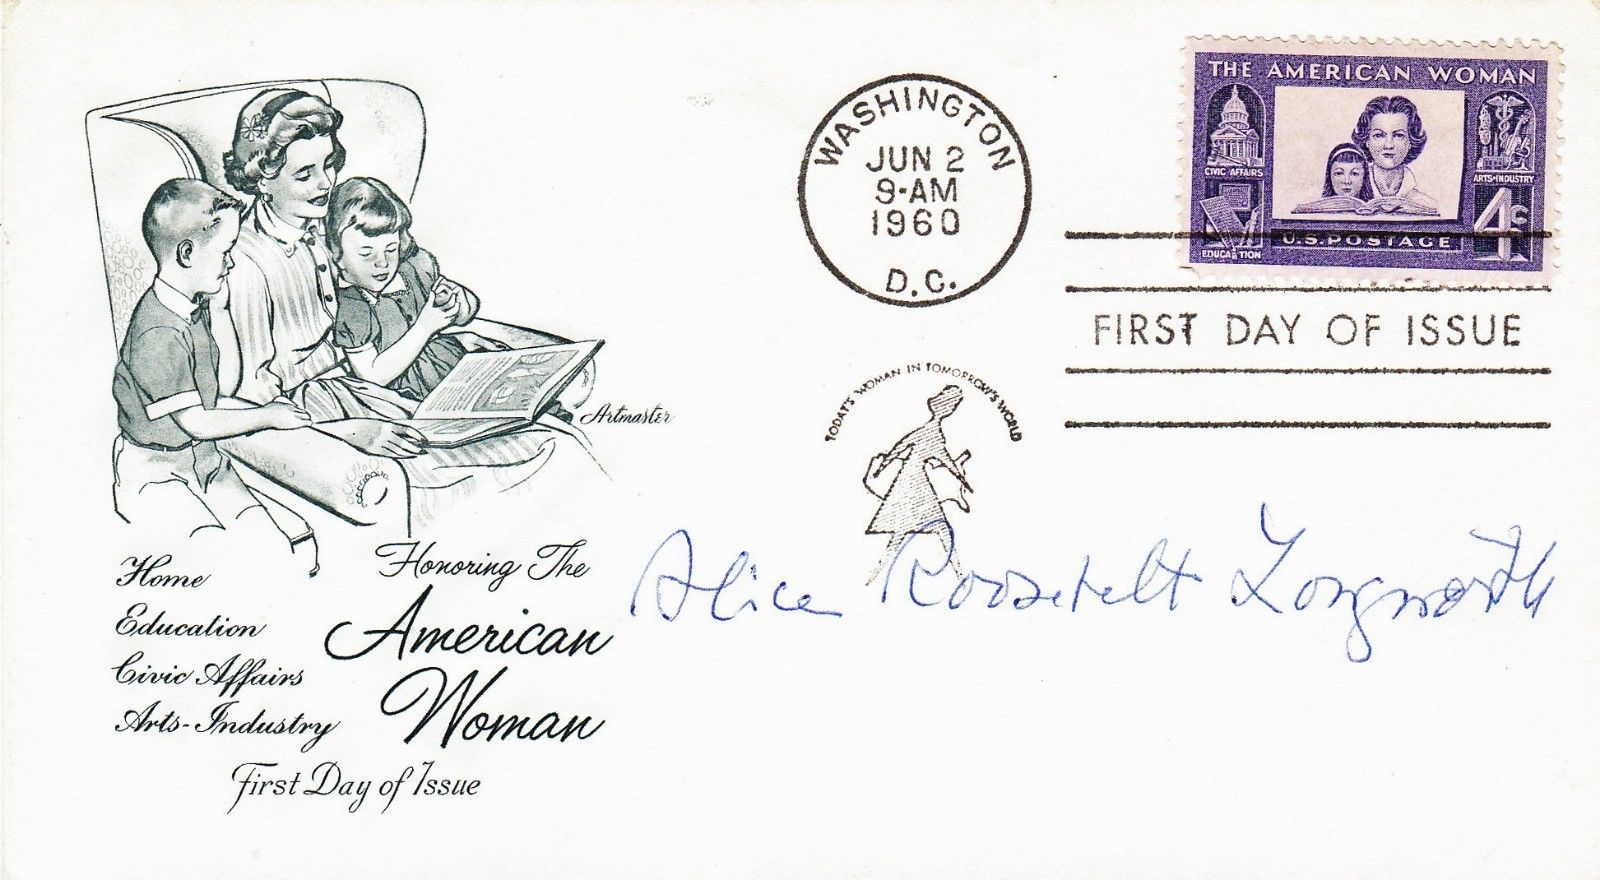 WASHINGTON
JUN 2
9-AM
1960
D.C.
THE AMERICAN WOMAN
CIVIC AFFAIRS
ARTS+INDUSTRY
EDUCATION
4c
U.S. POSTAGE
FIRST DAY OF ISSUE
TODAY'S WOMAN IN TOMORROW'S WORLD
Artmaster
Alice Roosevelt Longworth
Honoring The
American
Woman
Home
Education
Civic Affairs
Arts-Industry
First Day of Issue